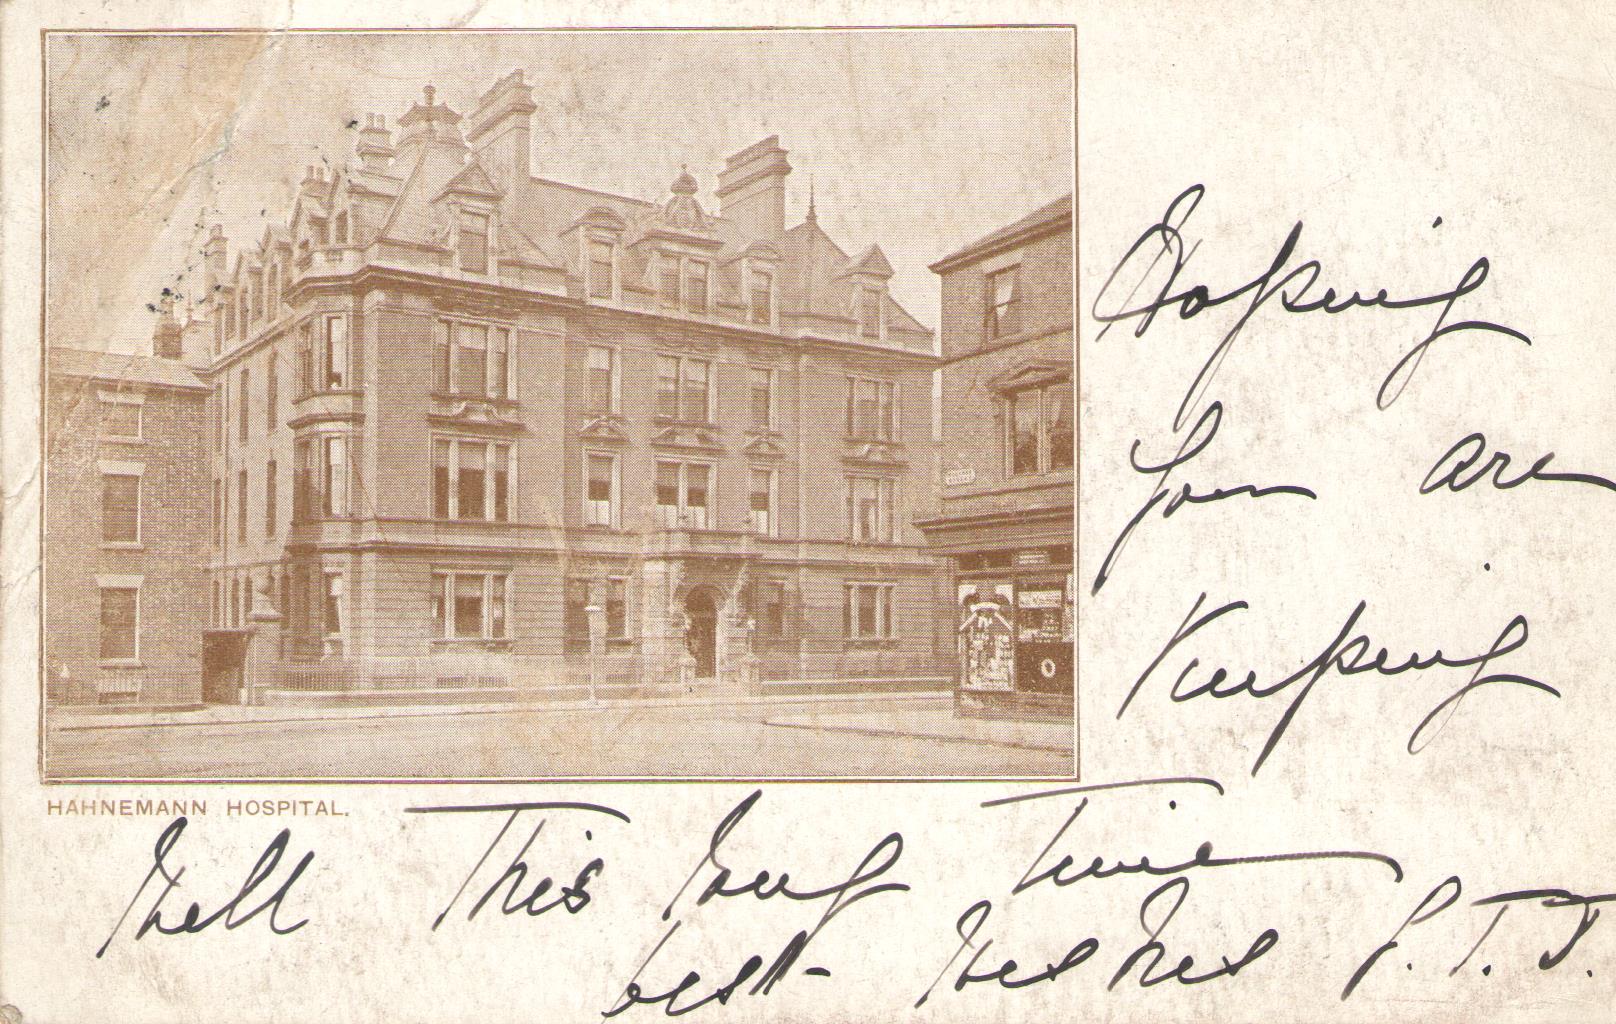 HAHNEMANN HOSPITAL.
Hoping
you are
Keeping
Well This long Time
best Wishes